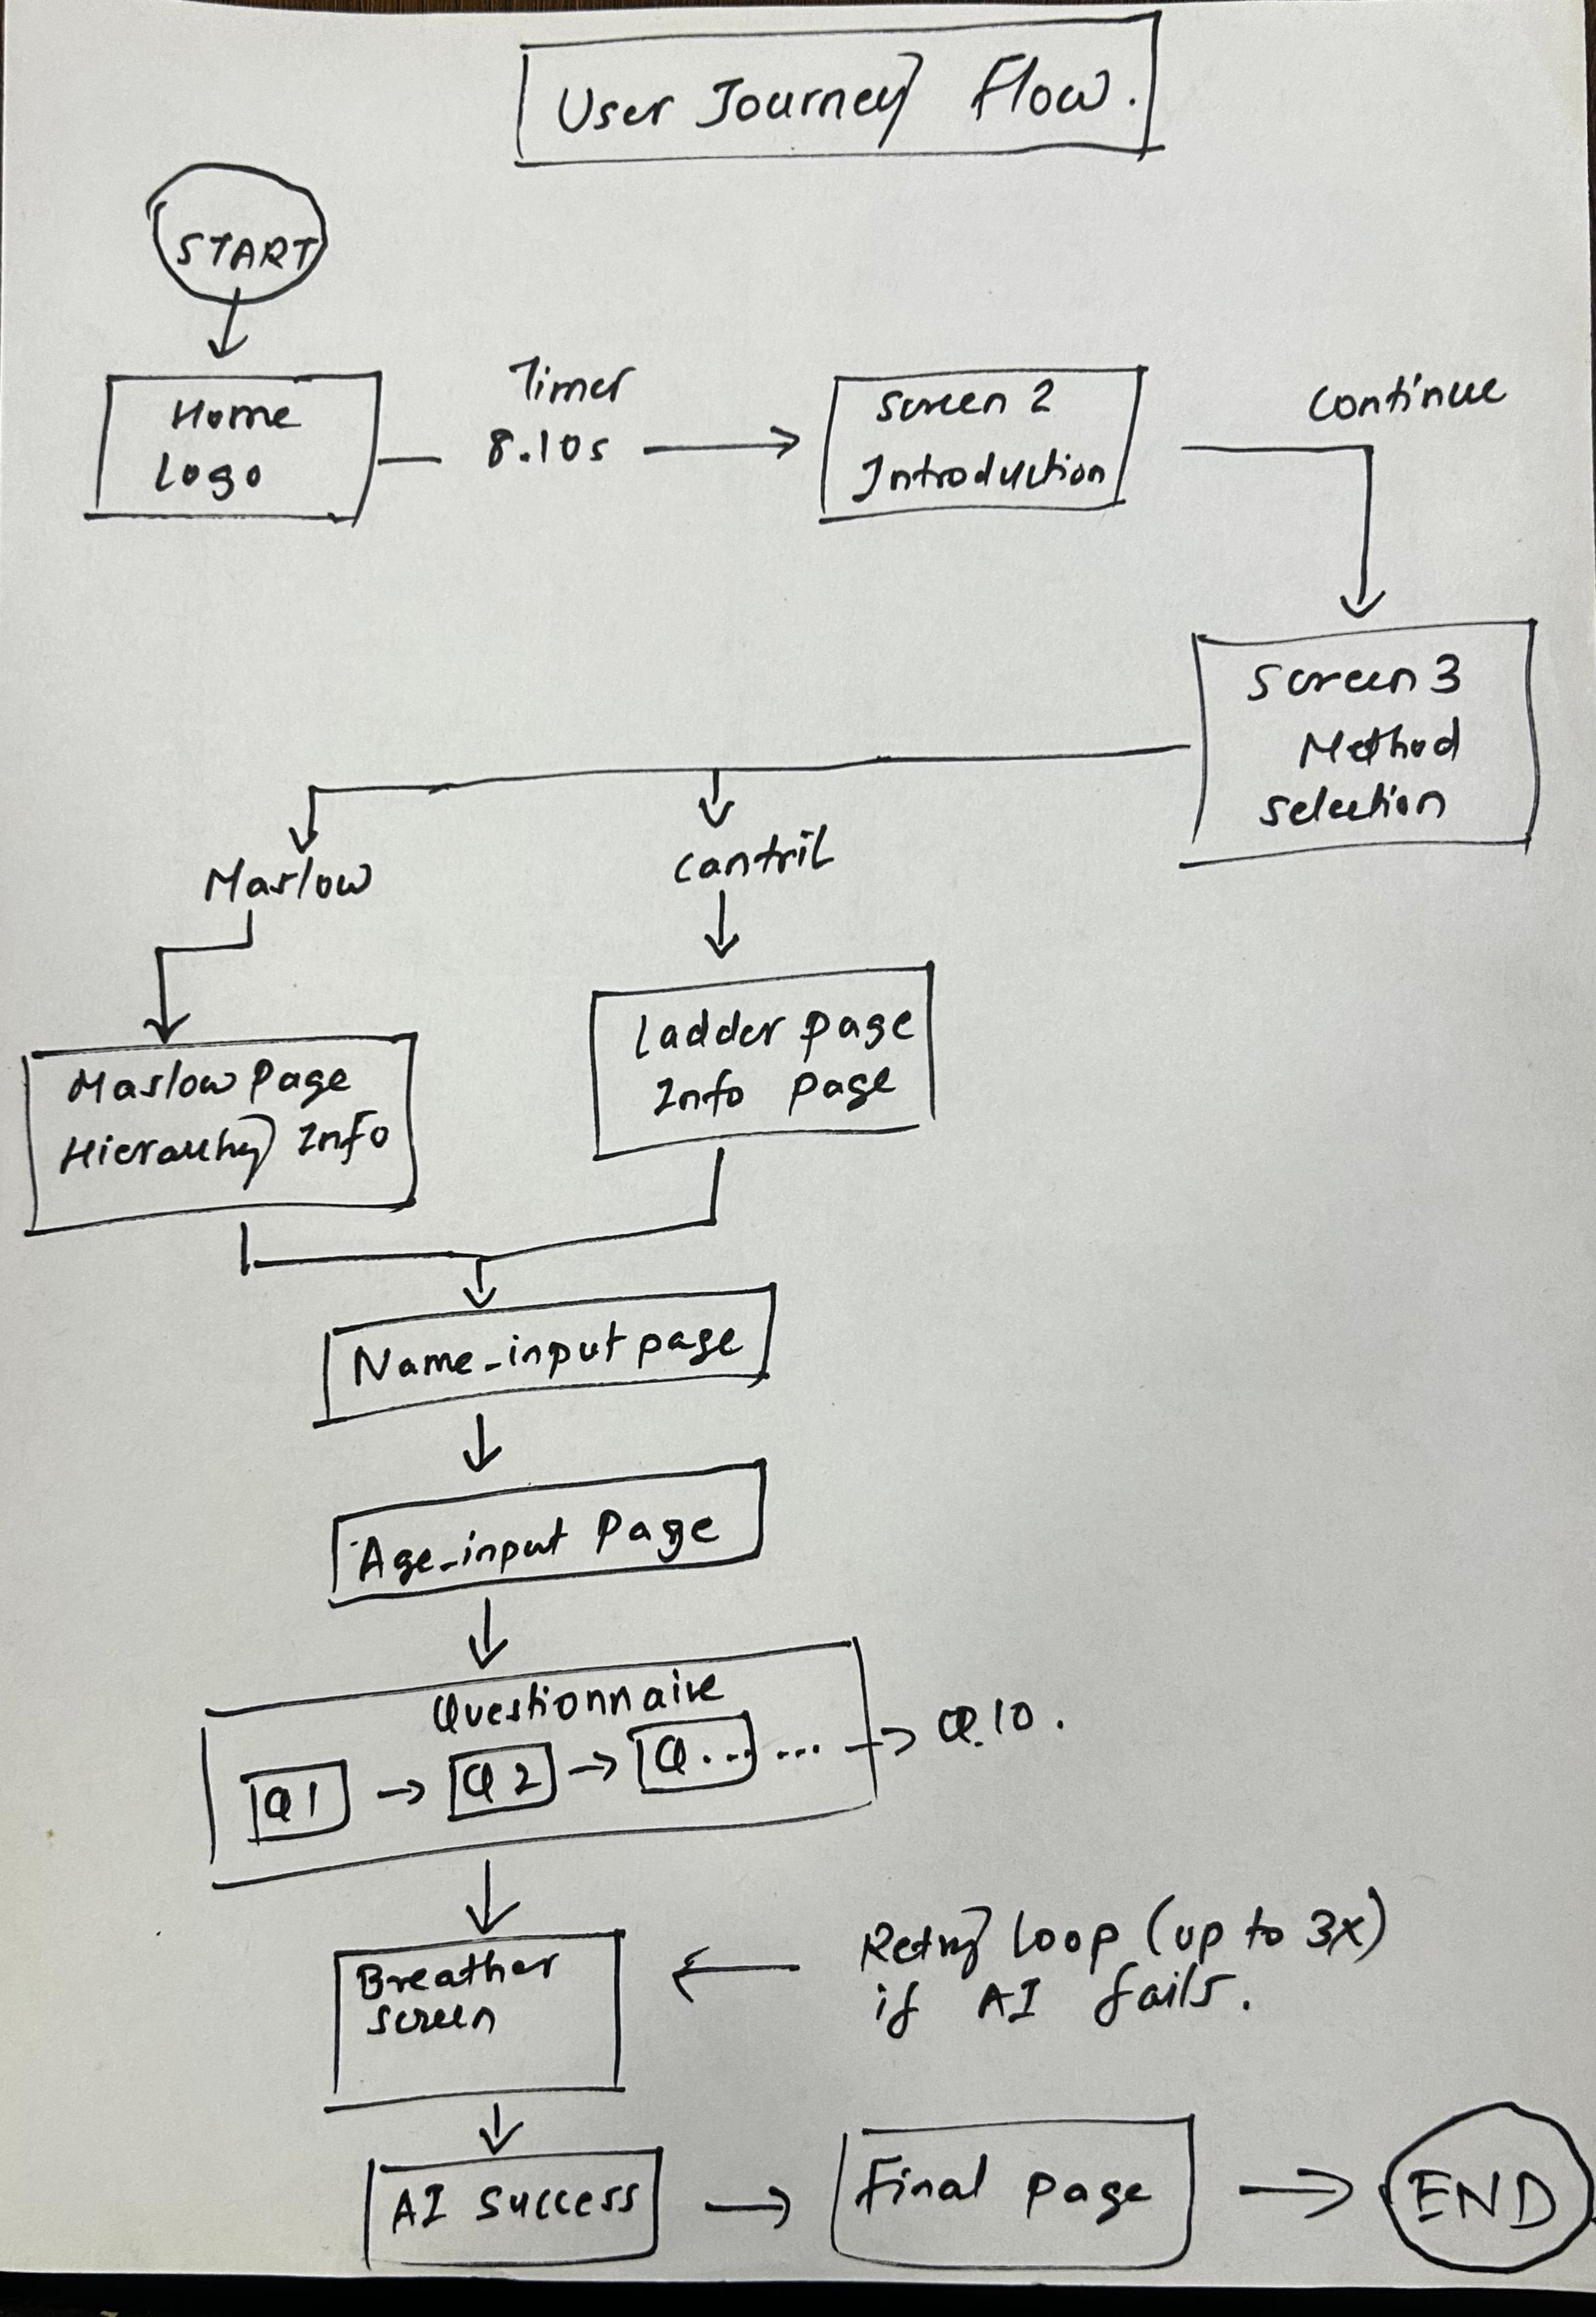 User Journey Flow.
START
Home
Logo
Timer
8.10s
Screen 2
Introduction
Continue
Screen 3
Method
Selection
Maslow
Cantril
Maslow Page
Hierarchy Info
Ladder Page
Info Page
Name-input page
Age-input Page
Questionnaire
Q1 → Q2 → Q... ... → Q.10.
Breather
Screen
Retry loop (up to 3x)
if AI fails.
AI Success
Final page
END